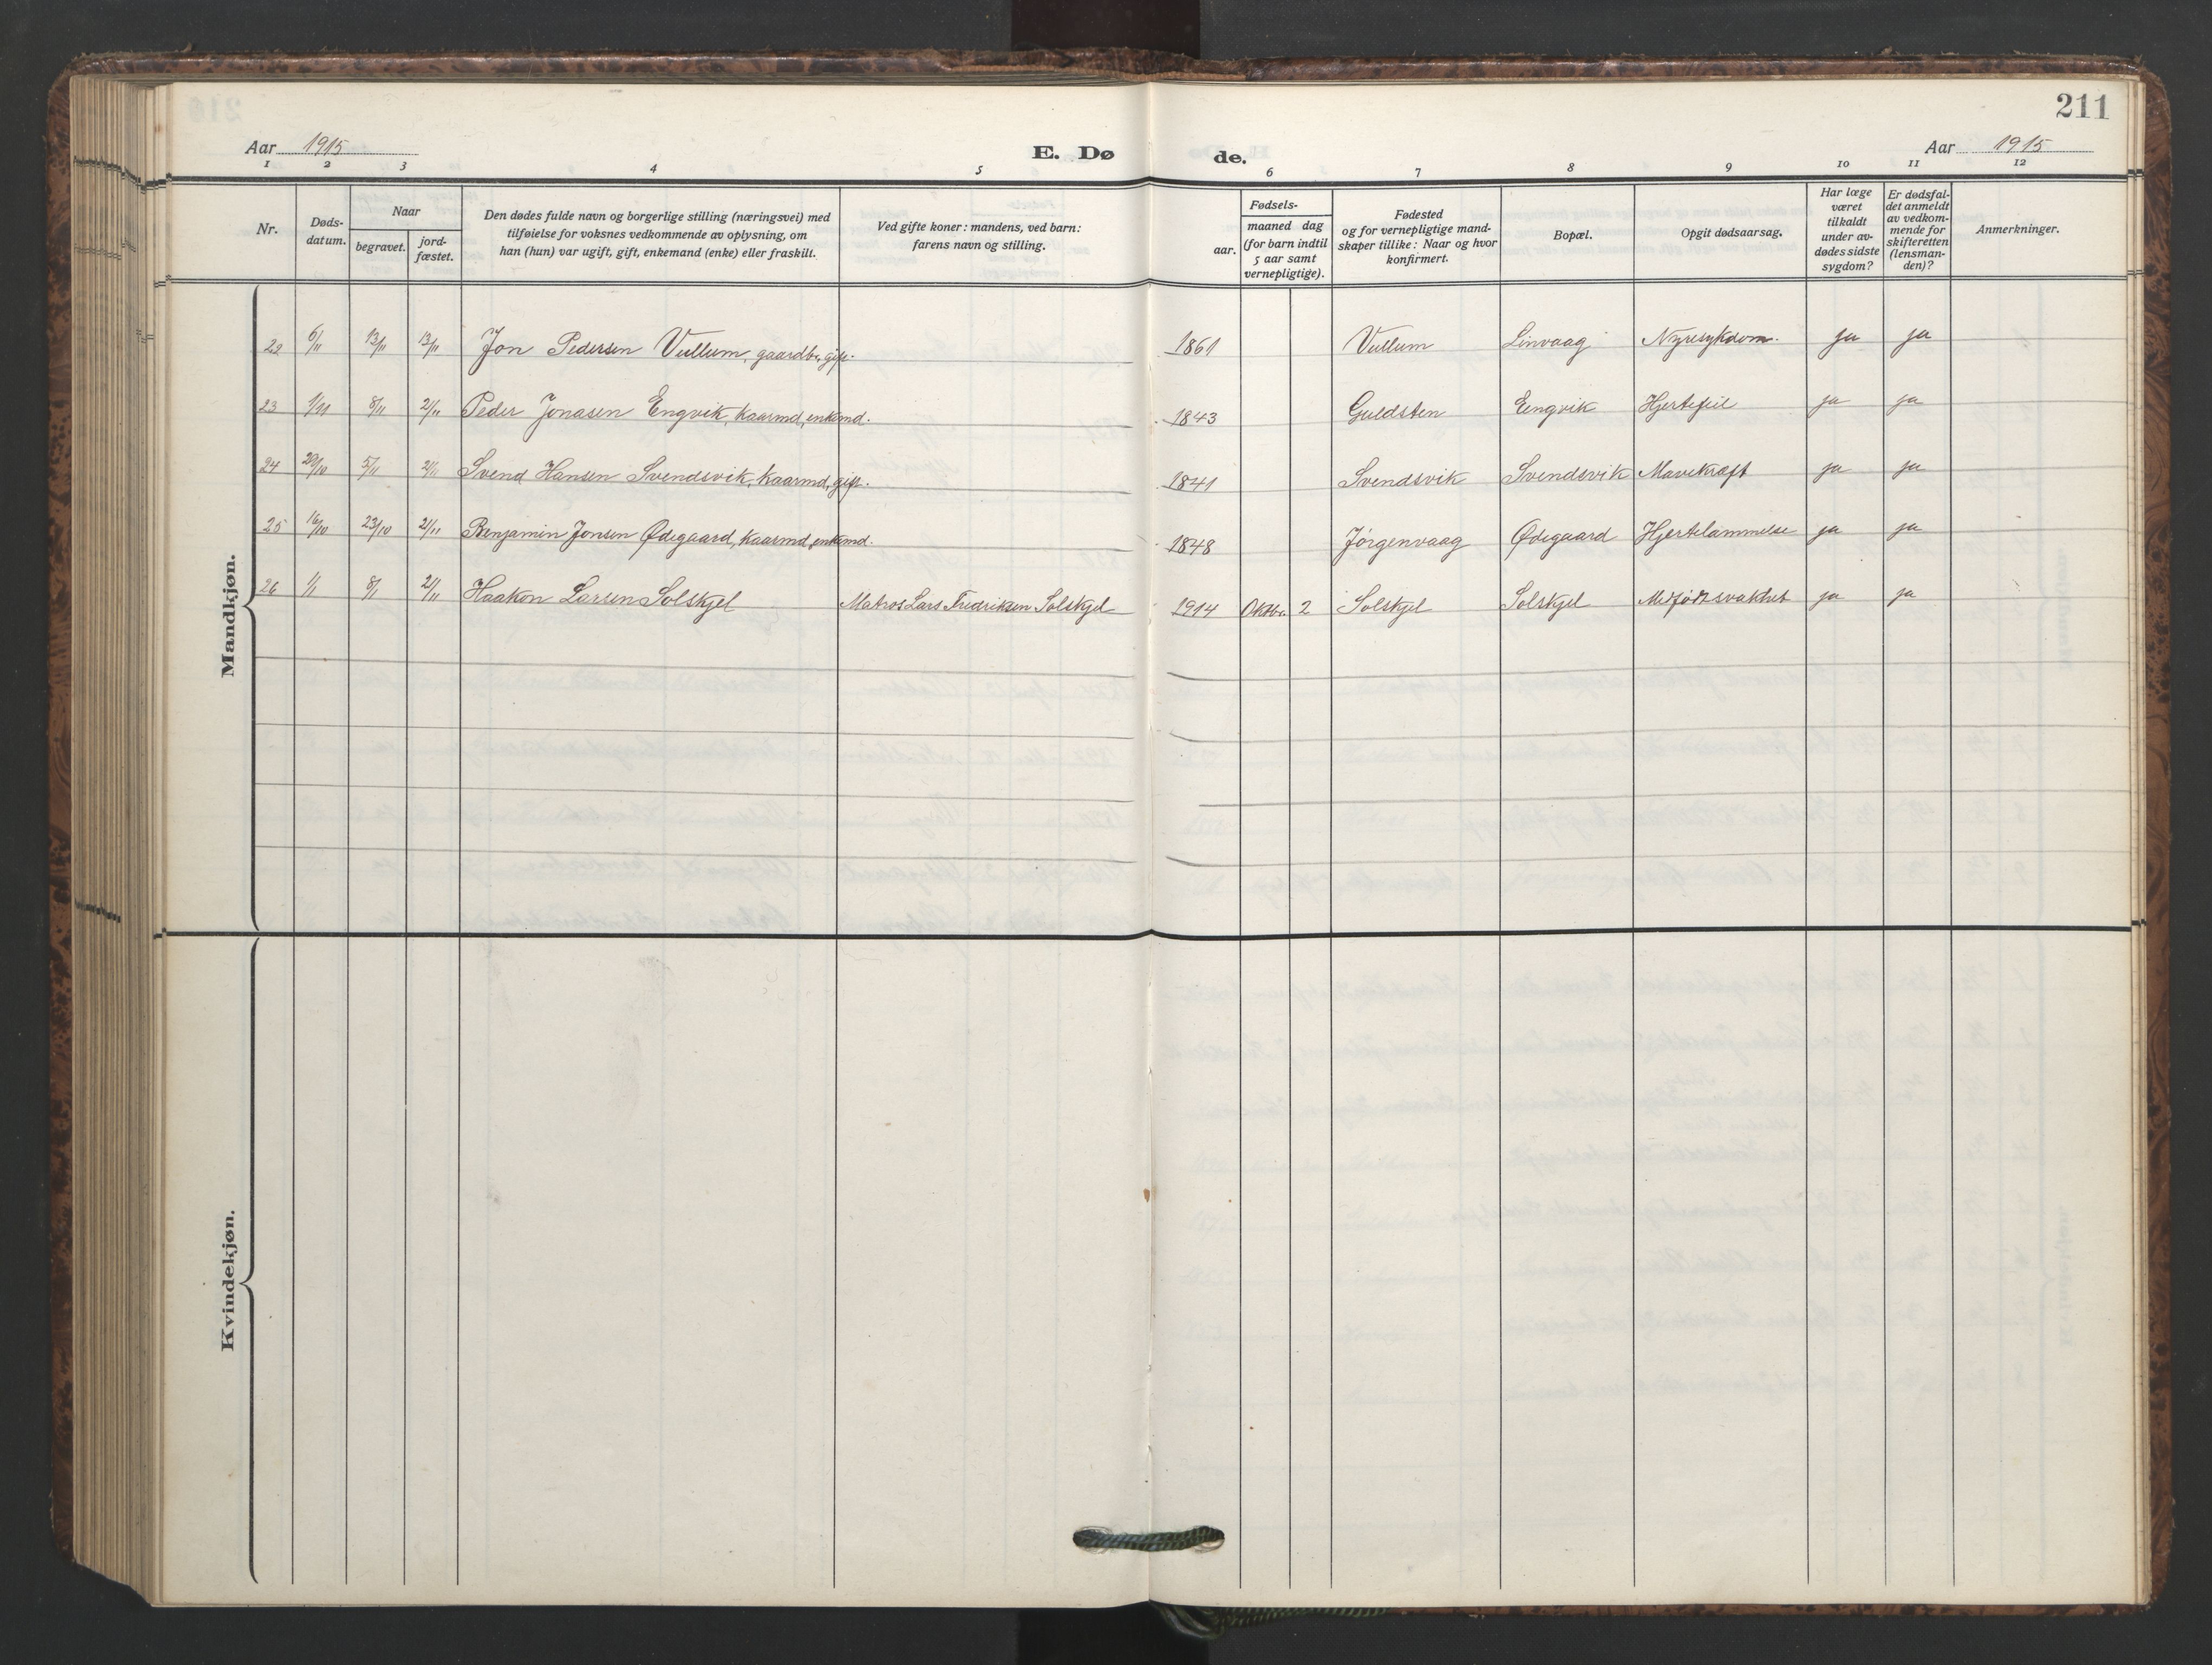 211
Aar 1915
E. Dø de.
Aar 1915
1 2 3 4 5 6 7 8 9 10 11 12
Nr.
Døds-
datum.
Naar
begravet.
jord-
fæstet.
Den dødes fulde navn og borgerlige stilling (næringsvei) med
tilføielse for voksnes vedkommende av oplysning, om
han (hun) var ugift, gift, enkemand (enke) eller fraskilt.
Ved gifte koner: mandens, ved barn:
farens navn og stilling.
Fødsels-
aar.
maaned dag
(for barn indtil
5 aar samt
vernepligtige).
Fødested
og for vernepligtige mand-
skaper tillike: Naar og hvor
konfirmert.
Bopæl.
Opgit dødsaarsag.
Har læge
været
tilkaldt
under av-
dødes sidste
sygdom?
Er dødsfal-
det anmeldt
av vedkom-
mende for
skifteretten
(lensman-
den)?
Anmerkninger.
Mandkjøn.
22 6/11 13/11 13/11 Jon Pedersen Vullum, gaardbr, gift. 1861 Vullum Linvaag Nyresykdom. ja ja
23 1/11 8/11 21/11 Peder Jonasen Engvik, kaarmd, enkemd. 1843 Guldsten Eengvik Hjertefeil ja ja
24 29/10 5/11 21/11 Svend Hansen Svendsvik, kaarmd, gift. 1841 Svendsvik Svendsvik Mavekræft ja ja
25 16/10 23/10 21/11 Benjamin Jonsen Ødegaard, kaarmd, enkemd. 1848 Jörgenvaag Ødegaard Hjertelammelse ja ja
26 1/1 8/1 21/11 Haakon Larsen Solskjel Matros Lars Fredriksen Solskjel 1914 Oktbr. 2 Solskjel Solskjel Medfødt svakhet ja ja
Kvindekjøn.